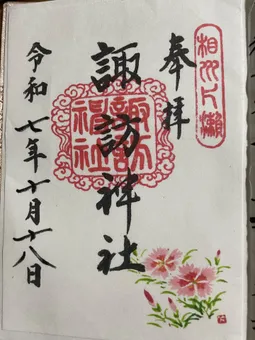 奉拝
相州片瀬
諏訪神社
諏訪神社
令和七年十月十八日